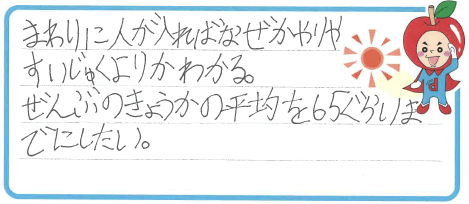 まわりに人が入ればなぜかやりや
すいじゅくよりかわかる。
ぜんぶのきょうかの平均を65ぐらいま
でにしたい。